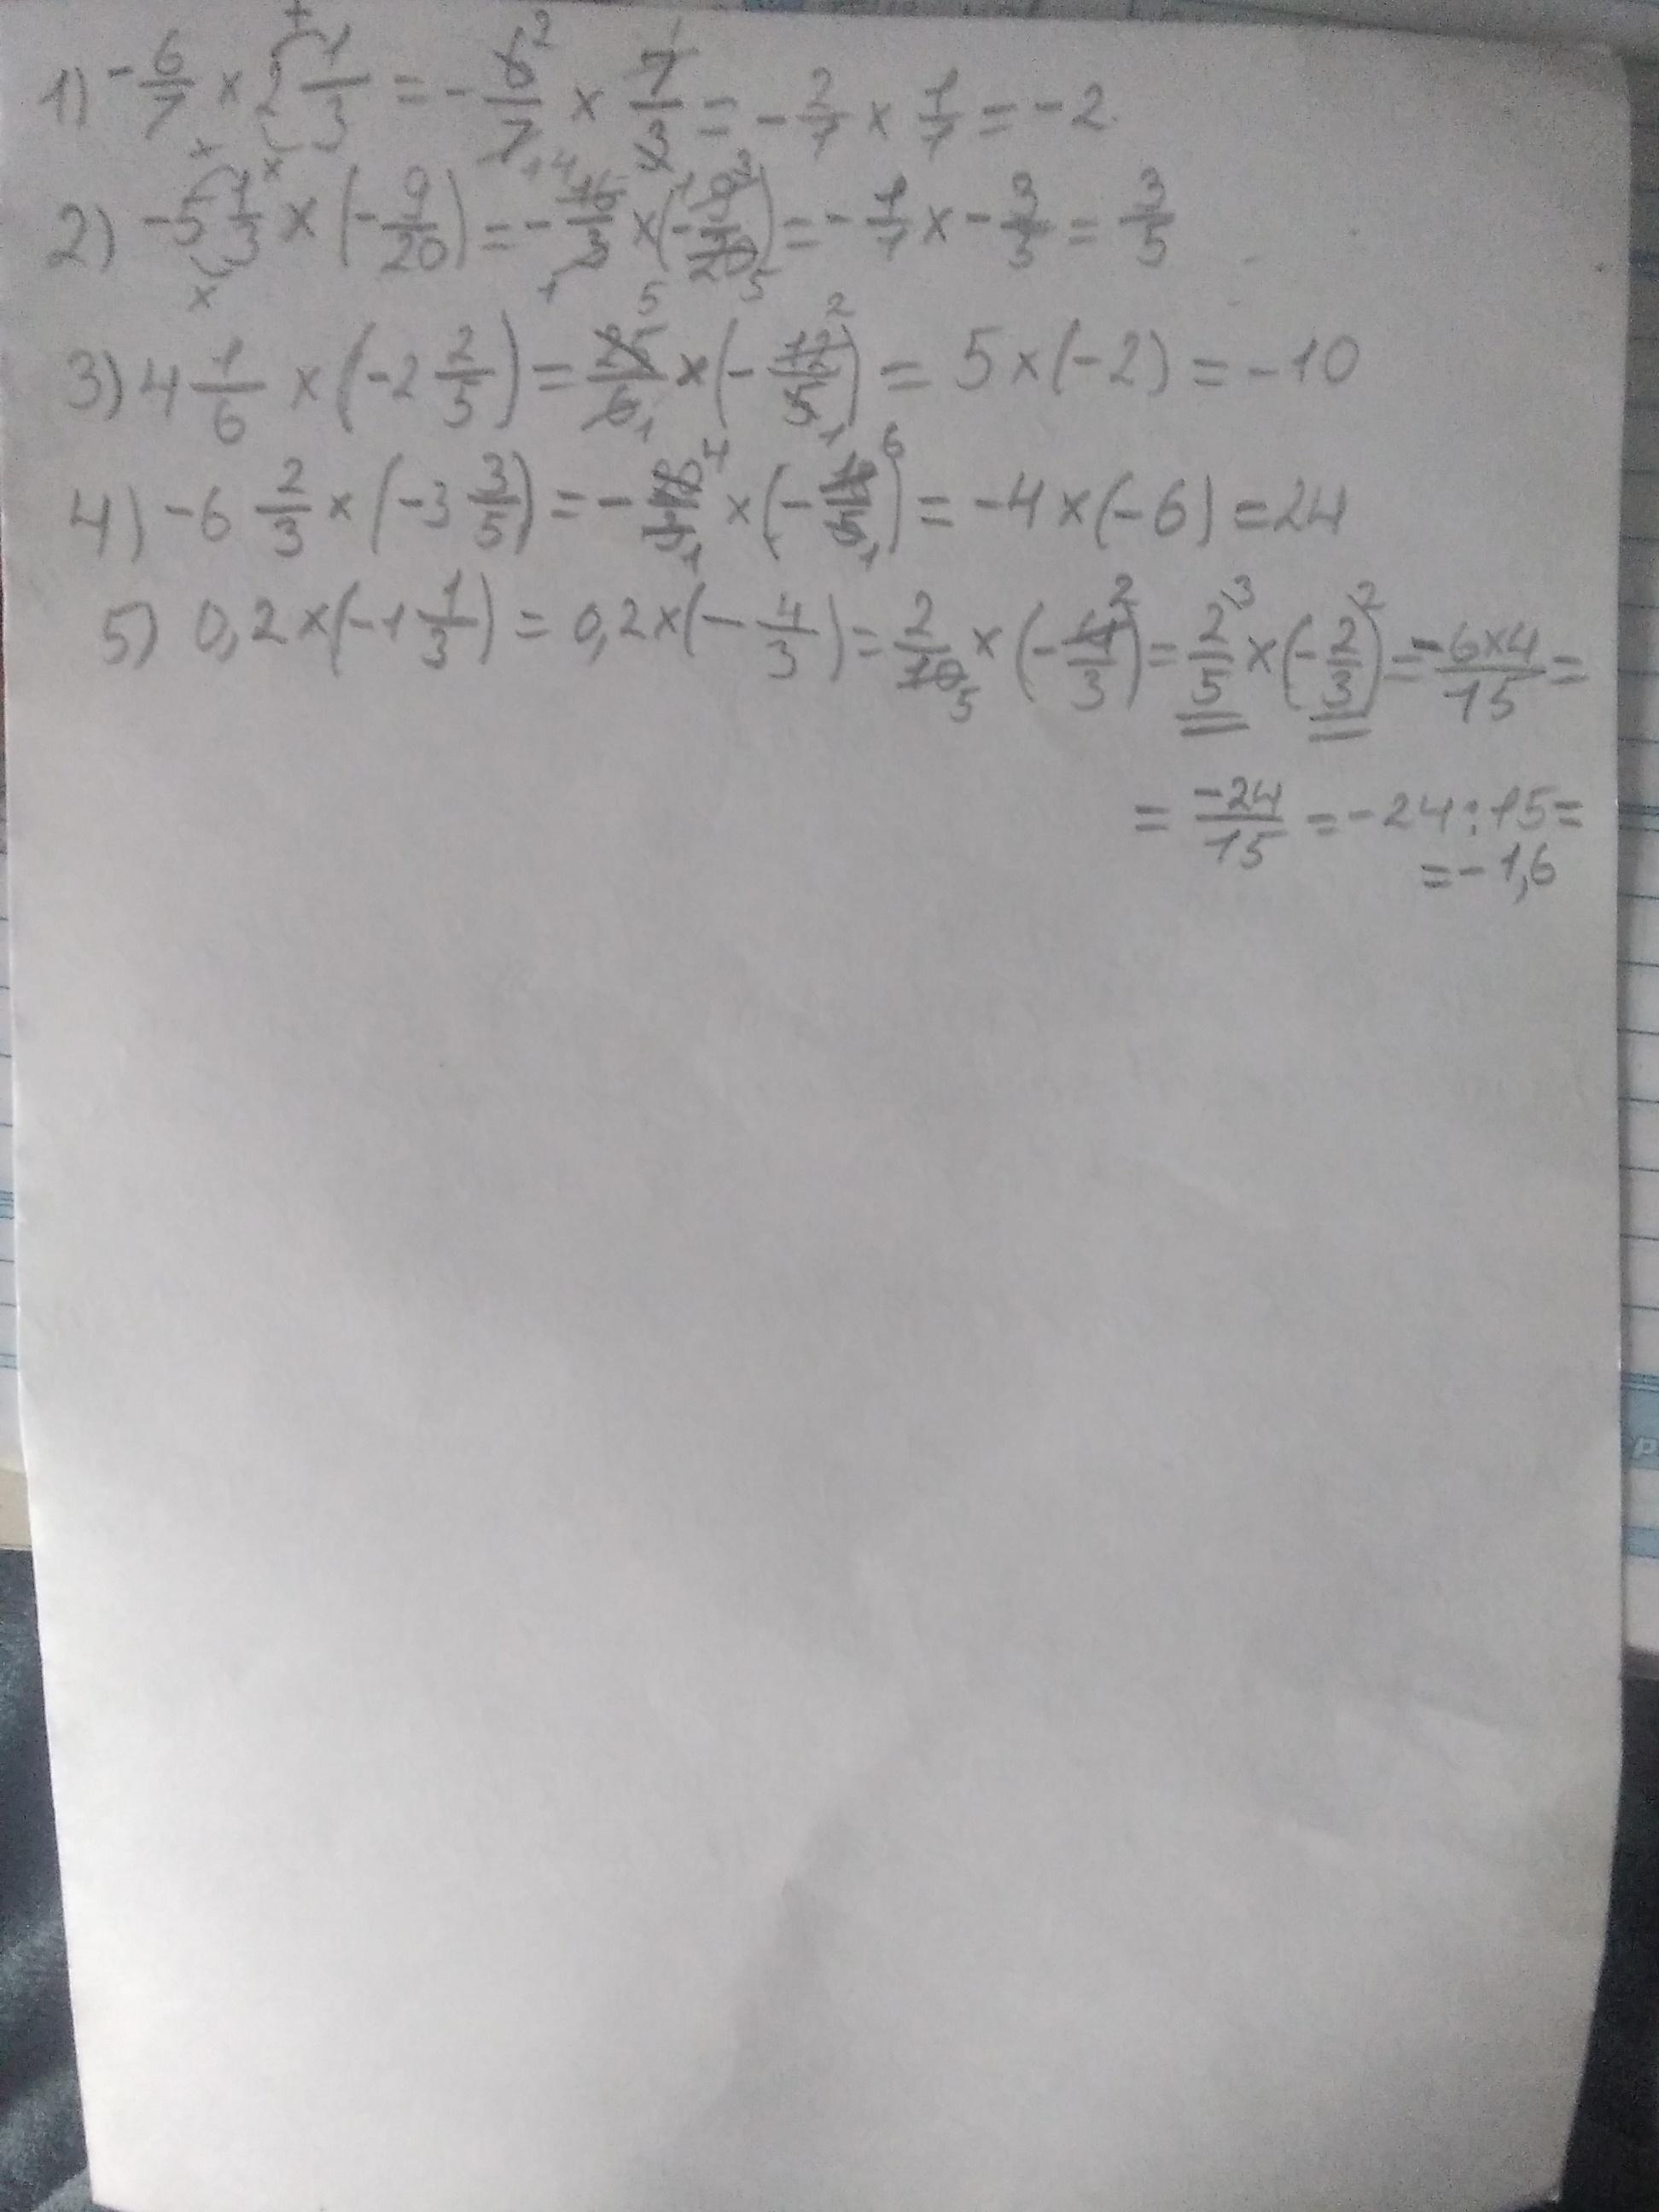 1) -6/7 × 2 1/3 = -6/7 × 7/3 = -2/7 × 1/7 = -2
2) -5 1/3 × (-9/20) = -16/3 × (-9/20) = -1/1 × -3/5 = 3/5
3) 4 1/6 × (-2 2/5) = 25/6 × (-12/5) = 5 × (-2) = -10
4) -6 2/3 × (-3 3/5) = -20/3 × (-18/5) = -4 × (-6) = 24
5) 0,2 × (-1 1/3) = 0,2 × (-4/3) = 2/10 × (-4/3) = 2/5 × (-2/3) = -6×4/15 =
= -24/15 = -24:15 =
= -1,6